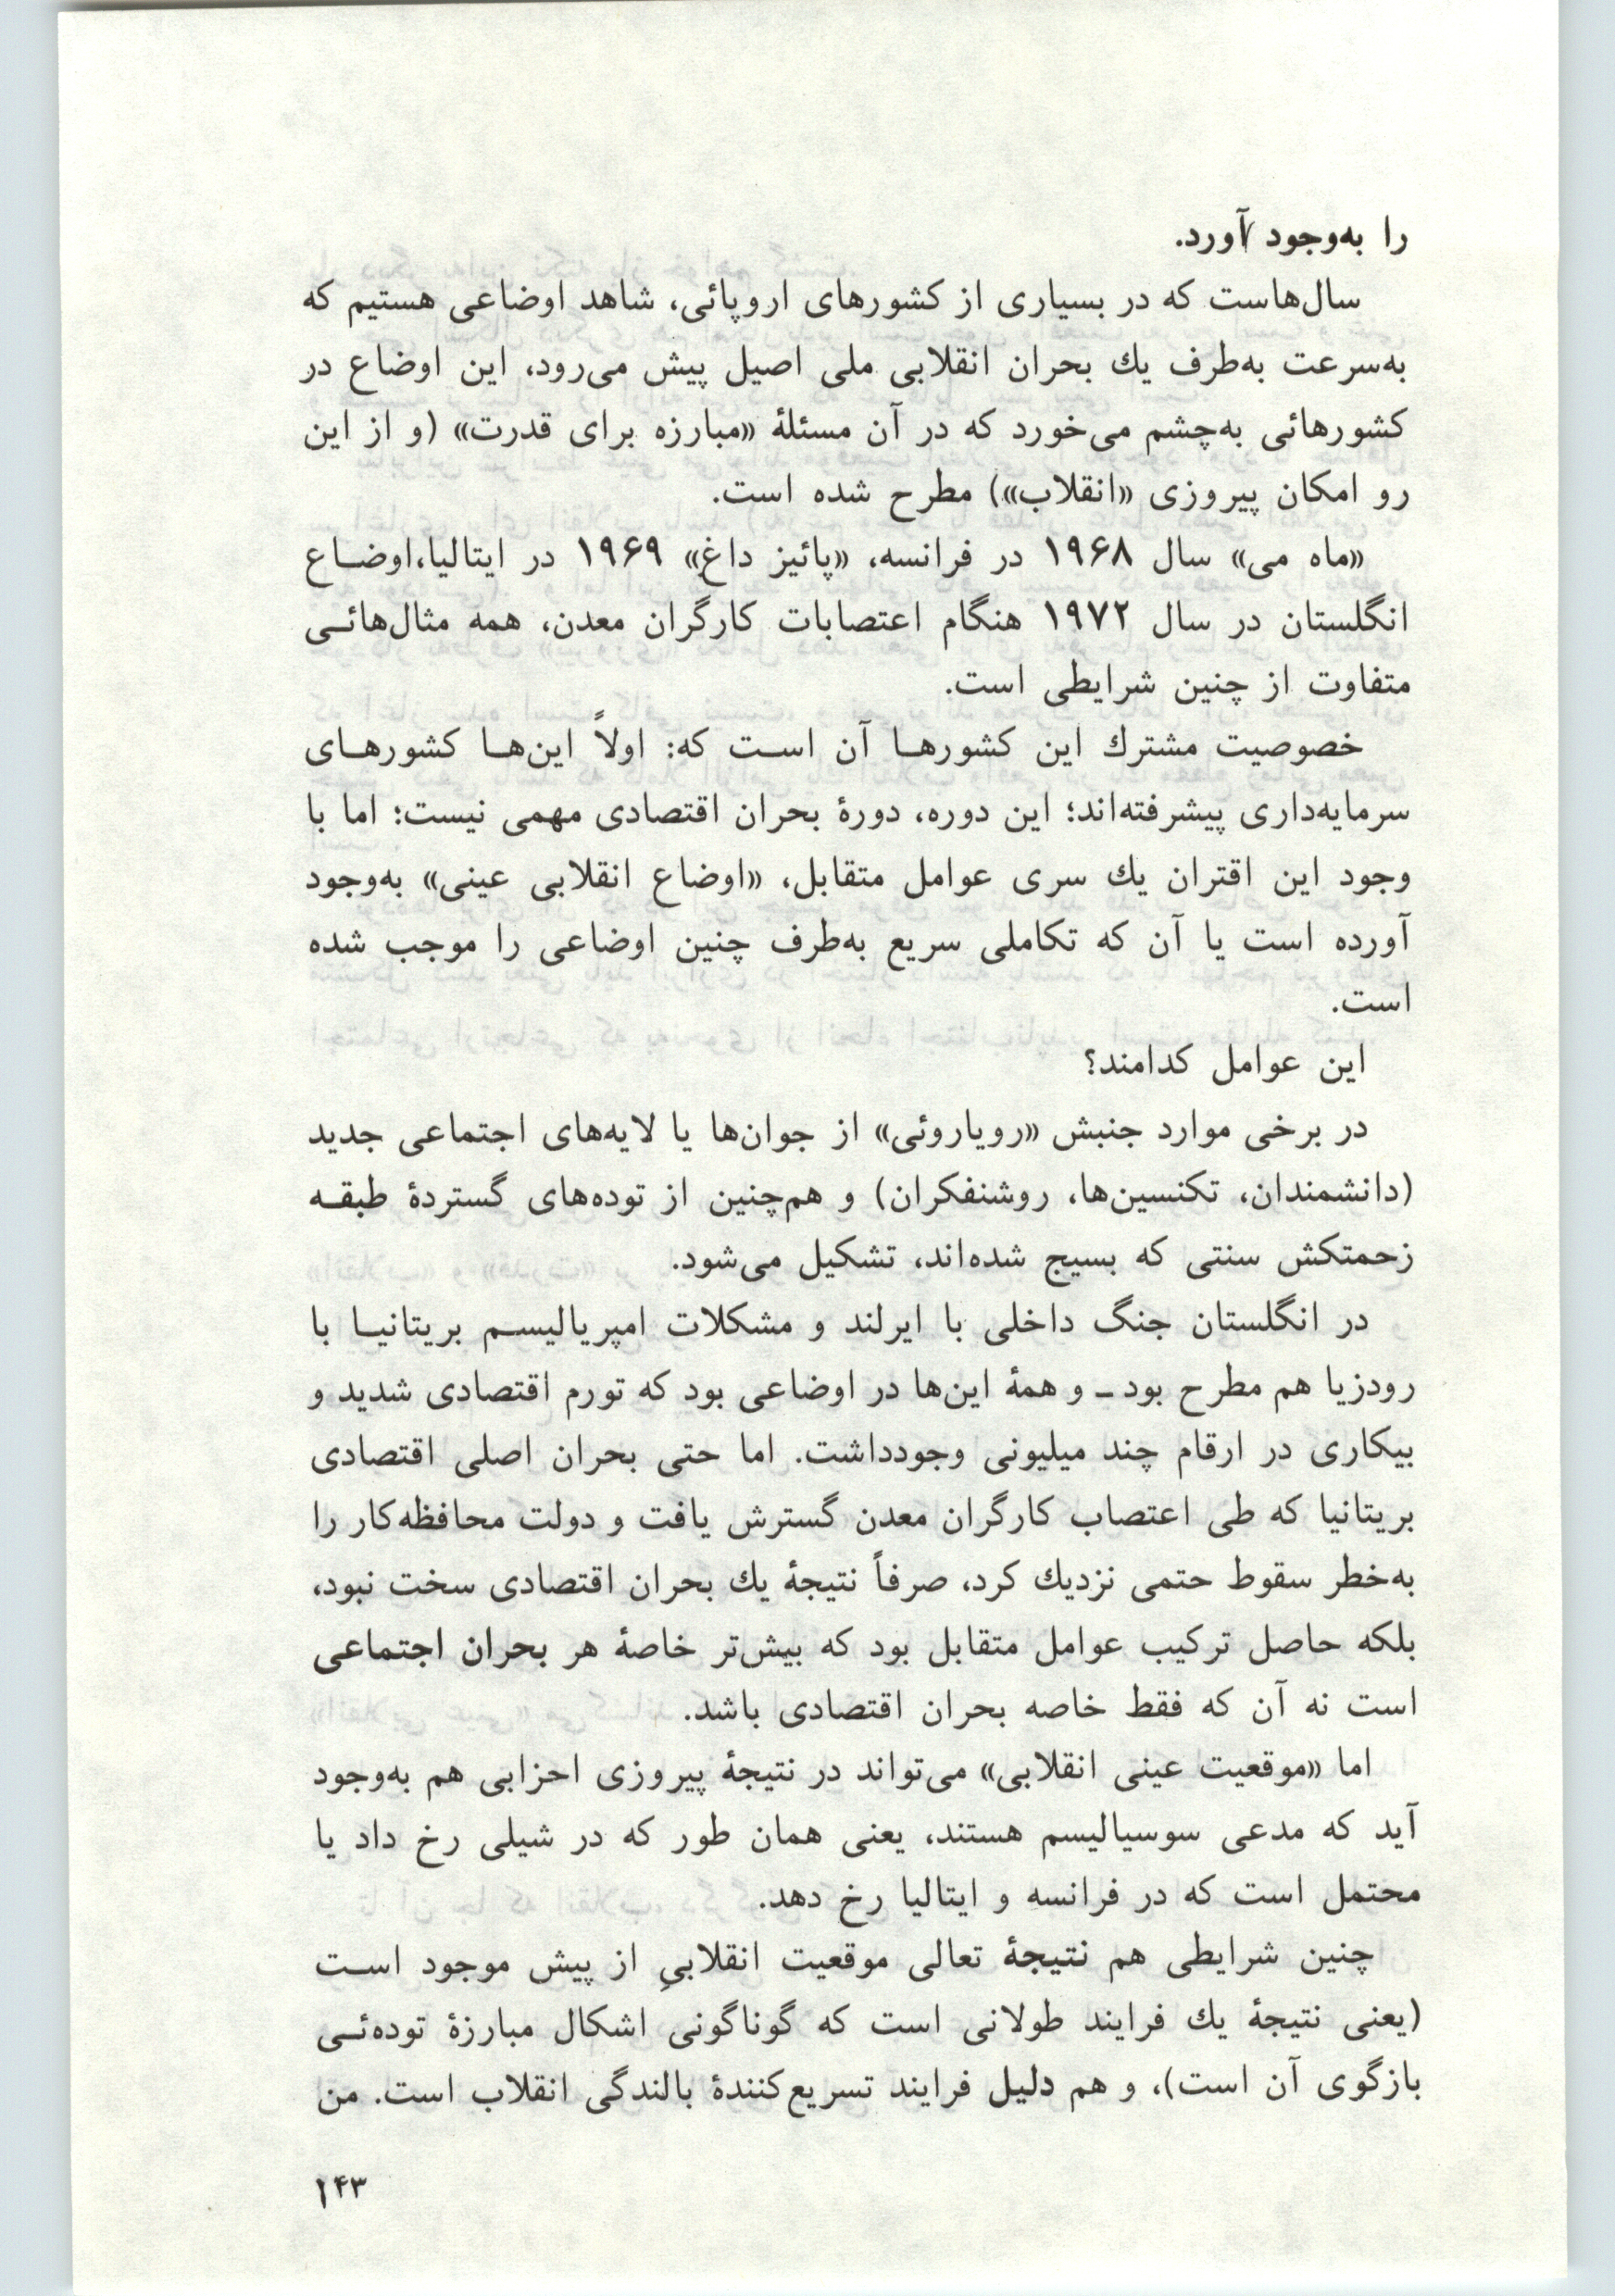 را به‌وجود آورد.
سال‌هاست که در بسیاری از کشورهای اروپائی، شاهد اوضاعی هستیم که
به‌سرعت به‌طرف یك بحران انقلابی ملی اصیل پیش می‌رود، این اوضاع در
کشورهائی به‌چشم می‌خورد که در آن مسئلهٔ «مبارزه برای قدرت» (و از این
رو امکان پیروزی «انقلاب») مطرح شده است.
«ماه می» سال ۱۹۶۸ در فرانسه، «پائیز داغ» ۱۹۶۹ در ایتالیا،اوضـاع
انگلستان در سال ۱۹۷۲ هنگام اعتصابات کارگران معدن، همه مثال‌هائـی
متفاوت از چنین شرایطی است.
خصوصیت مشترك این کشورهـا آن اسـت که: اولاً این‌هـا کشورهـای
سرمایه‌داری پیشرفته‌اند؛ این دوره، دورهٔ بحران اقتصادی مهمی نیست؛ اما با
وجود این اقتران یك سری عوامل متقابل، «اوضاع انقلابی عینی» به‌وجود
آورده است یا آن که تکاملی سریع به‌طرف چنین اوضاعی را موجب شده
است.
این عوامل کدامند؟
در برخی موارد جنبش «رویاروئی» از جوان‌ها یا لایه‌های اجتماعی جدید
(دانشمندان، تکنسین‌ها، روشنفکران) و هم‌چنین از توده‌های گستردهٔ طبقـه
زحمتکش سنتی که بسیج شده‌اند، تشکیل می‌شود.
در انگلستان جنگ داخلی با ایرلند و مشکلات امپریالیسـم بریتانیـا با
رودزیا هم مطرح بود ـ و همهٔ این‌ها در اوضاعی بود که تورم اقتصادی شدید و
بیکاری در ارقام چند میلیونی وجودداشت. اما حتی بحران اصلی اقتصادی
بریتانیا که طی اعتصاب کارگران معدن گسترش یافت و دولت محافظه‌کار را
به‌خطر سقوط حتمی نزدیك کرد، صرفاً نتیجهٔ یك بحران اقتصادی سخت نبود،
بلکه حاصل ترکیب عوامل متقابل بود که بیش‌تر خاصهٔ هر بحران اجتماعی
است نه آن که فقط خاصه بحران اقتصادی باشد.
اما «موقعیت عینی انقلابی» می‌تواند در نتیجهٔ پیروزی احزابی هم به‌وجود
آید که مدعی سوسیالیسم هستند، یعنی همان طور که در شیلی رخ داد یا
محتمل است که در فرانسه و ایتالیا رخ دهد.
چنین شرایطی هم نتیجهٔ تعالی موقعیت انقلابیِ از پیش موجود اسـت
(یعنی نتیجهٔ یك فرایند طولانی است که گوناگونی اشکال مبارزهٔ توده‌ئـی
بازگوی آن است)، و هم دلیل فرایند تسریع‌کنندهٔ بالندگی انقلاب است. من
۱۴۳